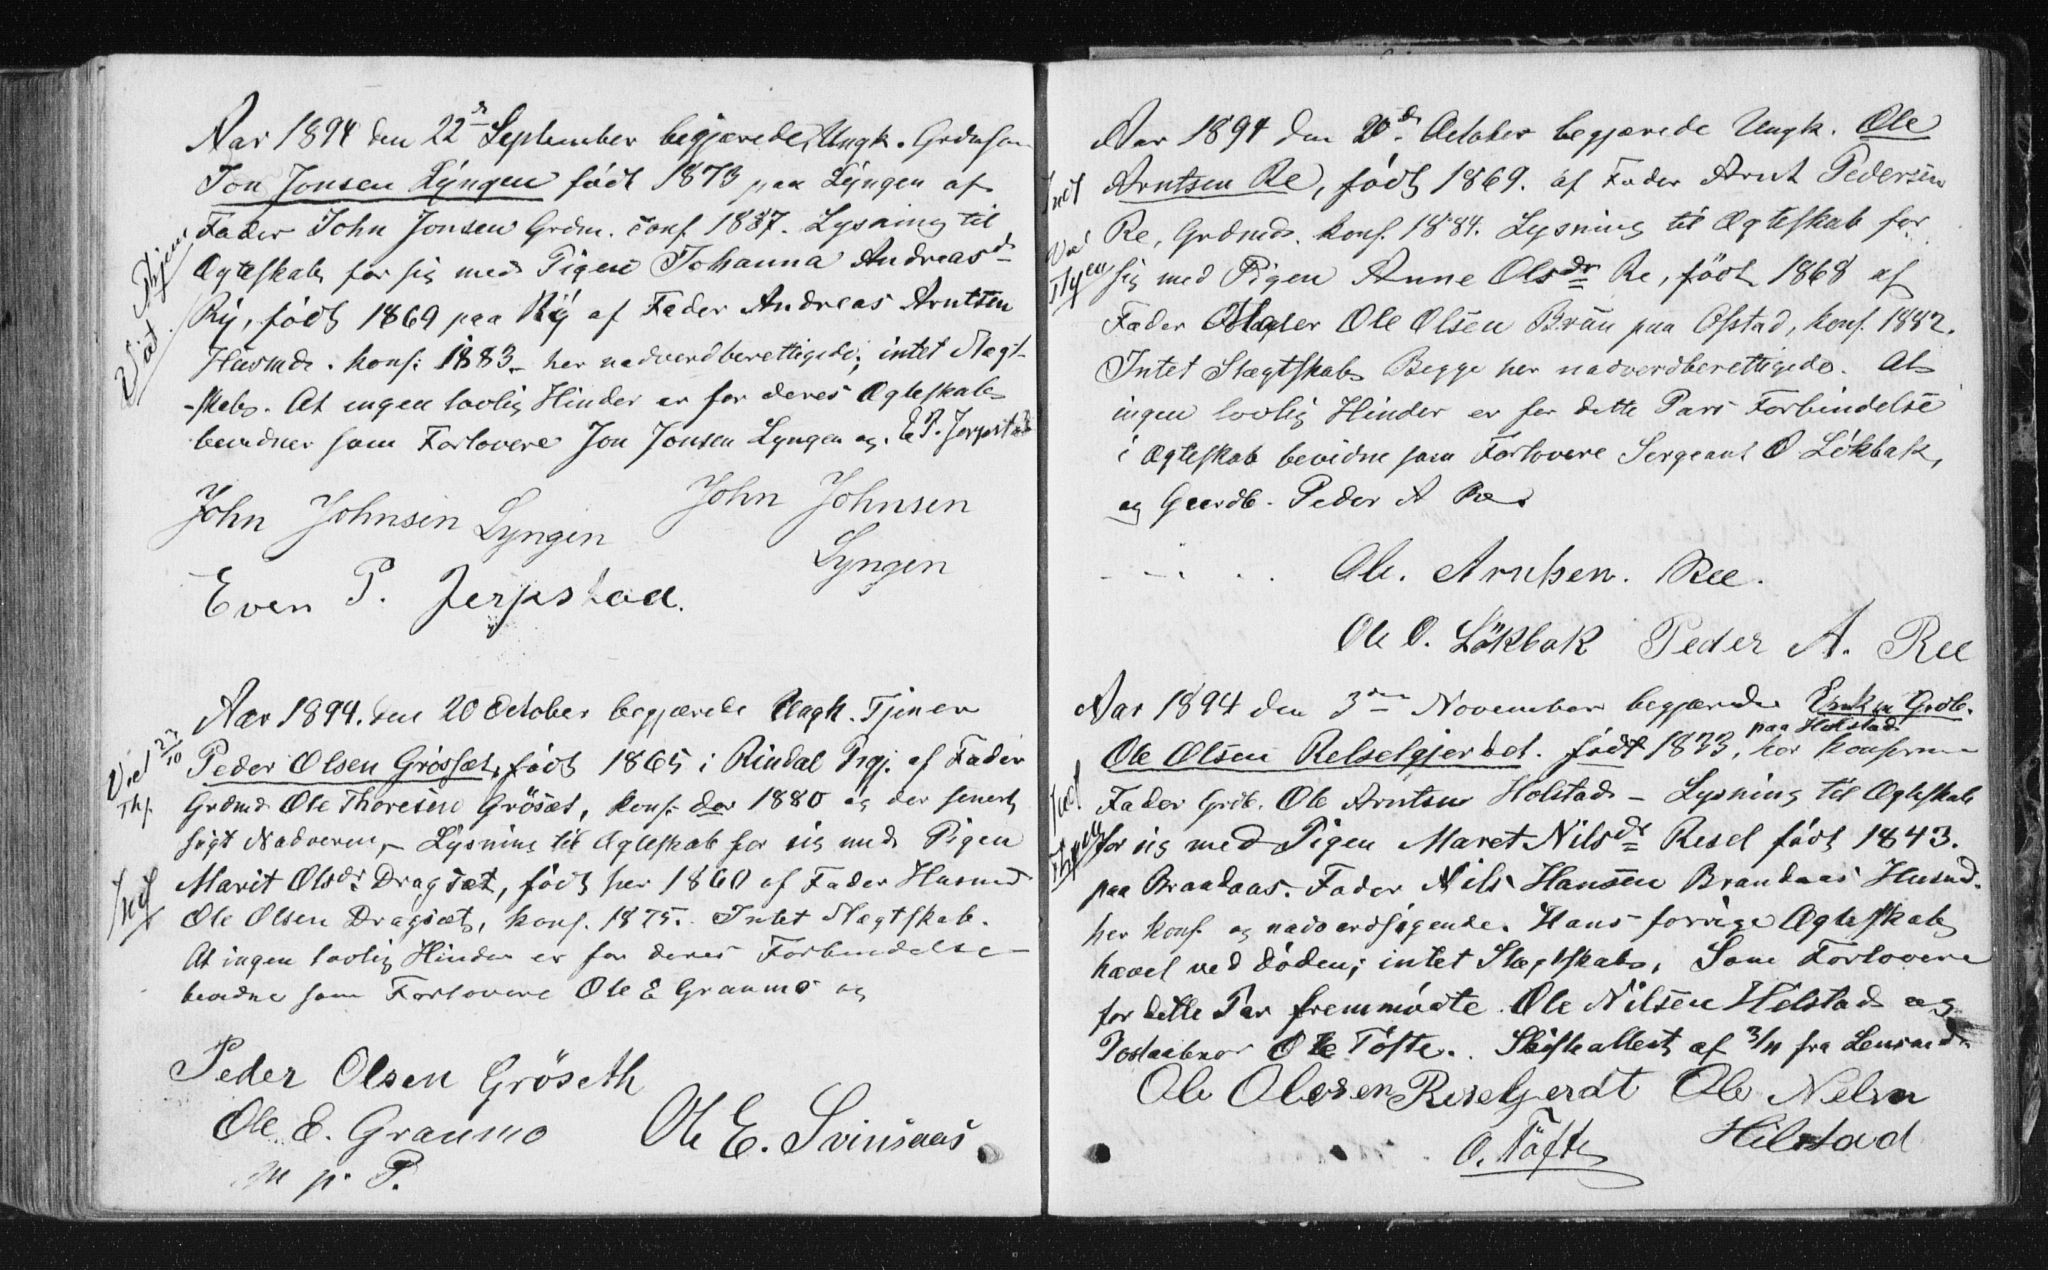 Aar 1894 den 22de September begjærede Ungk. Grdmsøn
Jon Jonsen Lyngen født 1873 paa Lyngen af
Fader John Jonsen Grdm. conf. 1887. Lysning til
Ægteskab for sig med Pigen Johanna Andreasdr
Ry, født 1869 paa Ry af Fader Andreas Arntsen
Husmd. konf. 1883. her nadverdberettigede; intet Slægt-
-skab. At ingen lovlig Hinder er for deres Ægteskab
bevidner som Forlovere Jon Jonsen Lyngen og E P. Jerpstad
Viet Thjem
John Johnsen Lyngen
John Johnsen
Lyngen
Even P. Jerpstad.
Aar 1894. den 20 October begjærede Ungk. Tjener
Peder Olsen Grøsset, født 1865 i Rindal Prgj. af Fader
Grdmd Ole Thoresen Grösæt, konf. der 1880 og der senest
søgt Nadveren, – Lysning til Ægteskab for sig med Pigen
Marit Olsdr Dragsæt, født her 1860 af Fader Husmd
Ole Olsen Dragsæt, konf. 1875. Intet Slægtskab.
At ingen lovlig Hinder er for deres Forbindelse
bevidne som Forlovere Ole E Granmo og
Viet 23/10
Peder Olsen Gröseth
Ole E. Granmo
Ole E. Svinsaas
m p. P.
Aar 1894 den 20de October begjærede Ungk. Ole
Arntsen Re, født 1869. af Fader Arnt Pedersen
Re, Grdmd. konf. 1884. Lysning til Ægteskab for
sig med Pigen Anne Olsdr Re, født 1868 af
Fader Ole Olsen Bruu paa Ofstad, konf. 1882.
Intet Slægtskab. Begge her nadverdberettigede. At
ingen lovlig Hinder er for dette Pars Forbindelse
i Ægteskab bevidne som Forlovere Sergeant O Lökbak,
og Gaardb. Peder A Re
Ole. Arntsen. Ree.
Ole O. Lökbak Peder A. Ree
Aar 1894 den 3die November begjærede Enkem Grdb.
Ole Olsen Relselgjerdet. født 1833, paa Holstad her konf
Fader Grdb. Ole Arntsen Holstad – Lysning til Ægteskab
for sig med Pigen Maret Nilsdr Resel født 1843.
paa Brandaas. Fader Nils Hansen Brandaas Husmd.
her konf. og nadverdsøgende. Hans forrige Ægteskab
hævet ved Døden; intet Slægtskab. Som Forlovere
for dette Par fremmødte Ole Nilsen Hilstad og
Postaabner Ole Töfte. Skifteattest af 3/11 fra Lensmd.
Ole Olesen Reselgjerdt Ole Nelsn
Hilstad
O. Töfte